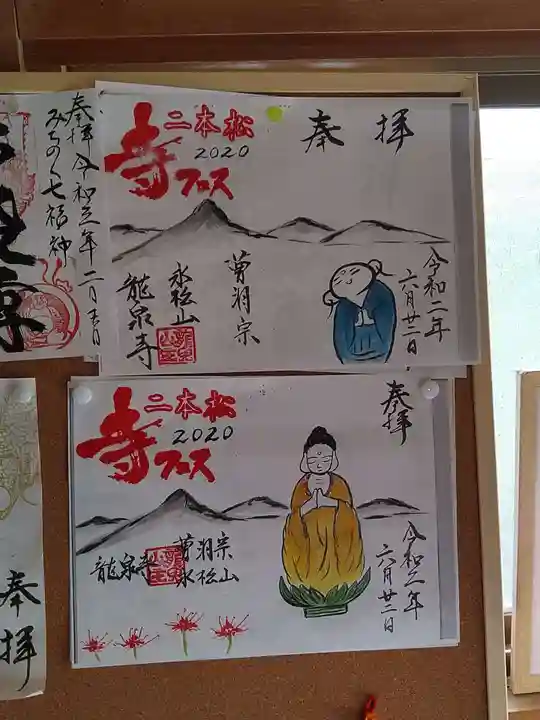 奉拝
二本松
2020
寺フェス
曹洞宗
永松山
龍泉寺
令和二年
六月廿二日
奉拝
二本松
2020
寺フェス
曹洞宗
永松山
龍泉寺
令和二年
六月廿二日
みちのく七福神
奉拝